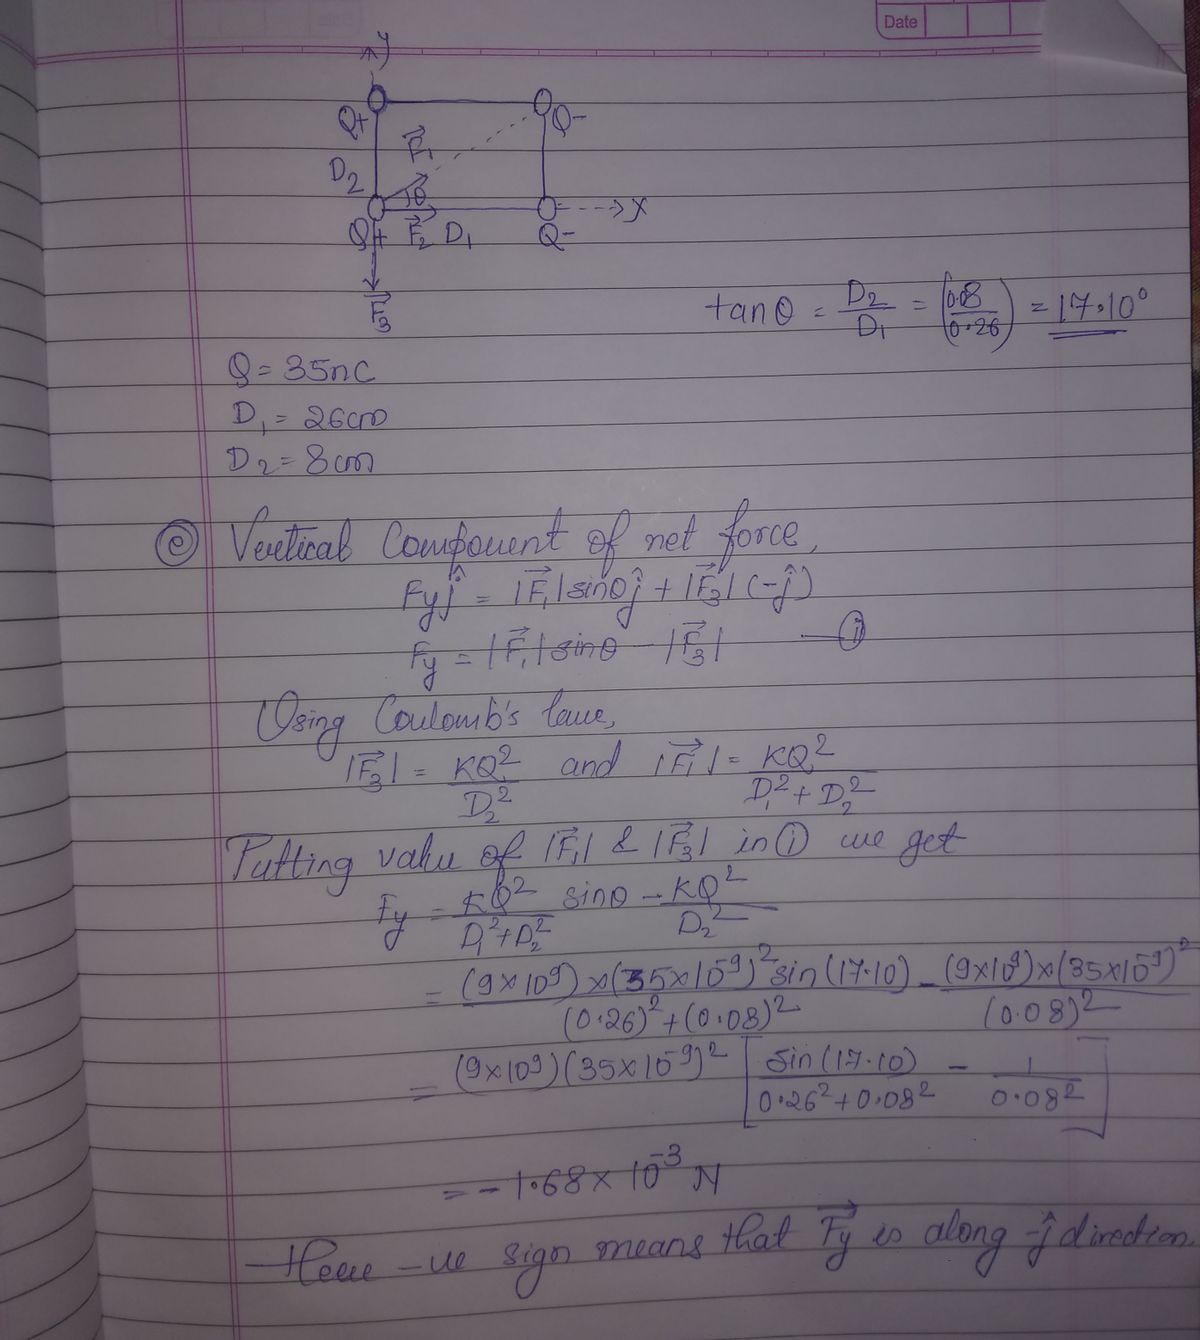 Date
y
Q+ Q-
F⃗₁
D₂
θ
X
Q+ F⃗₂ D₁ Q-
F⃗₃
tanθ = D₂/D₁ = (0.08/0.26) = 17.10°
Q = 35nC
D₁ = 26cm
D₂ = 8cm
ⓔ Vertical Component of net force,
Fyĵ = |F⃗₁|sinθĵ + |F⃗₃|(-ĵ)
Fy = |F⃗₁|sinθ - |F⃗₃| —ⓘ
Using Coulomb's lawe,
|F⃗₃| = KQ²/D₂² and |F⃗₁| = KQ²/D₁²+D₂²
Putting value of |F⃗₁| & |F⃗₃| in ⓘ we get
Fy = KQ²/D₁²+D₂² sinθ - KQ²/D₂²
= (9×10⁹)×(35×10⁻⁹)²sin(17.10)/(0.26)²+(0.08)² - (9×10⁹)×(35×10⁻⁹)²/(0.08)²
= (9×10⁹)(35×10⁻⁹)² [sin(17.10)/0.26²+0.08² - 1/0.08²]
= -1.68×10⁻³ N
Here -ve sign means that F⃗y is along -ĵ direction.